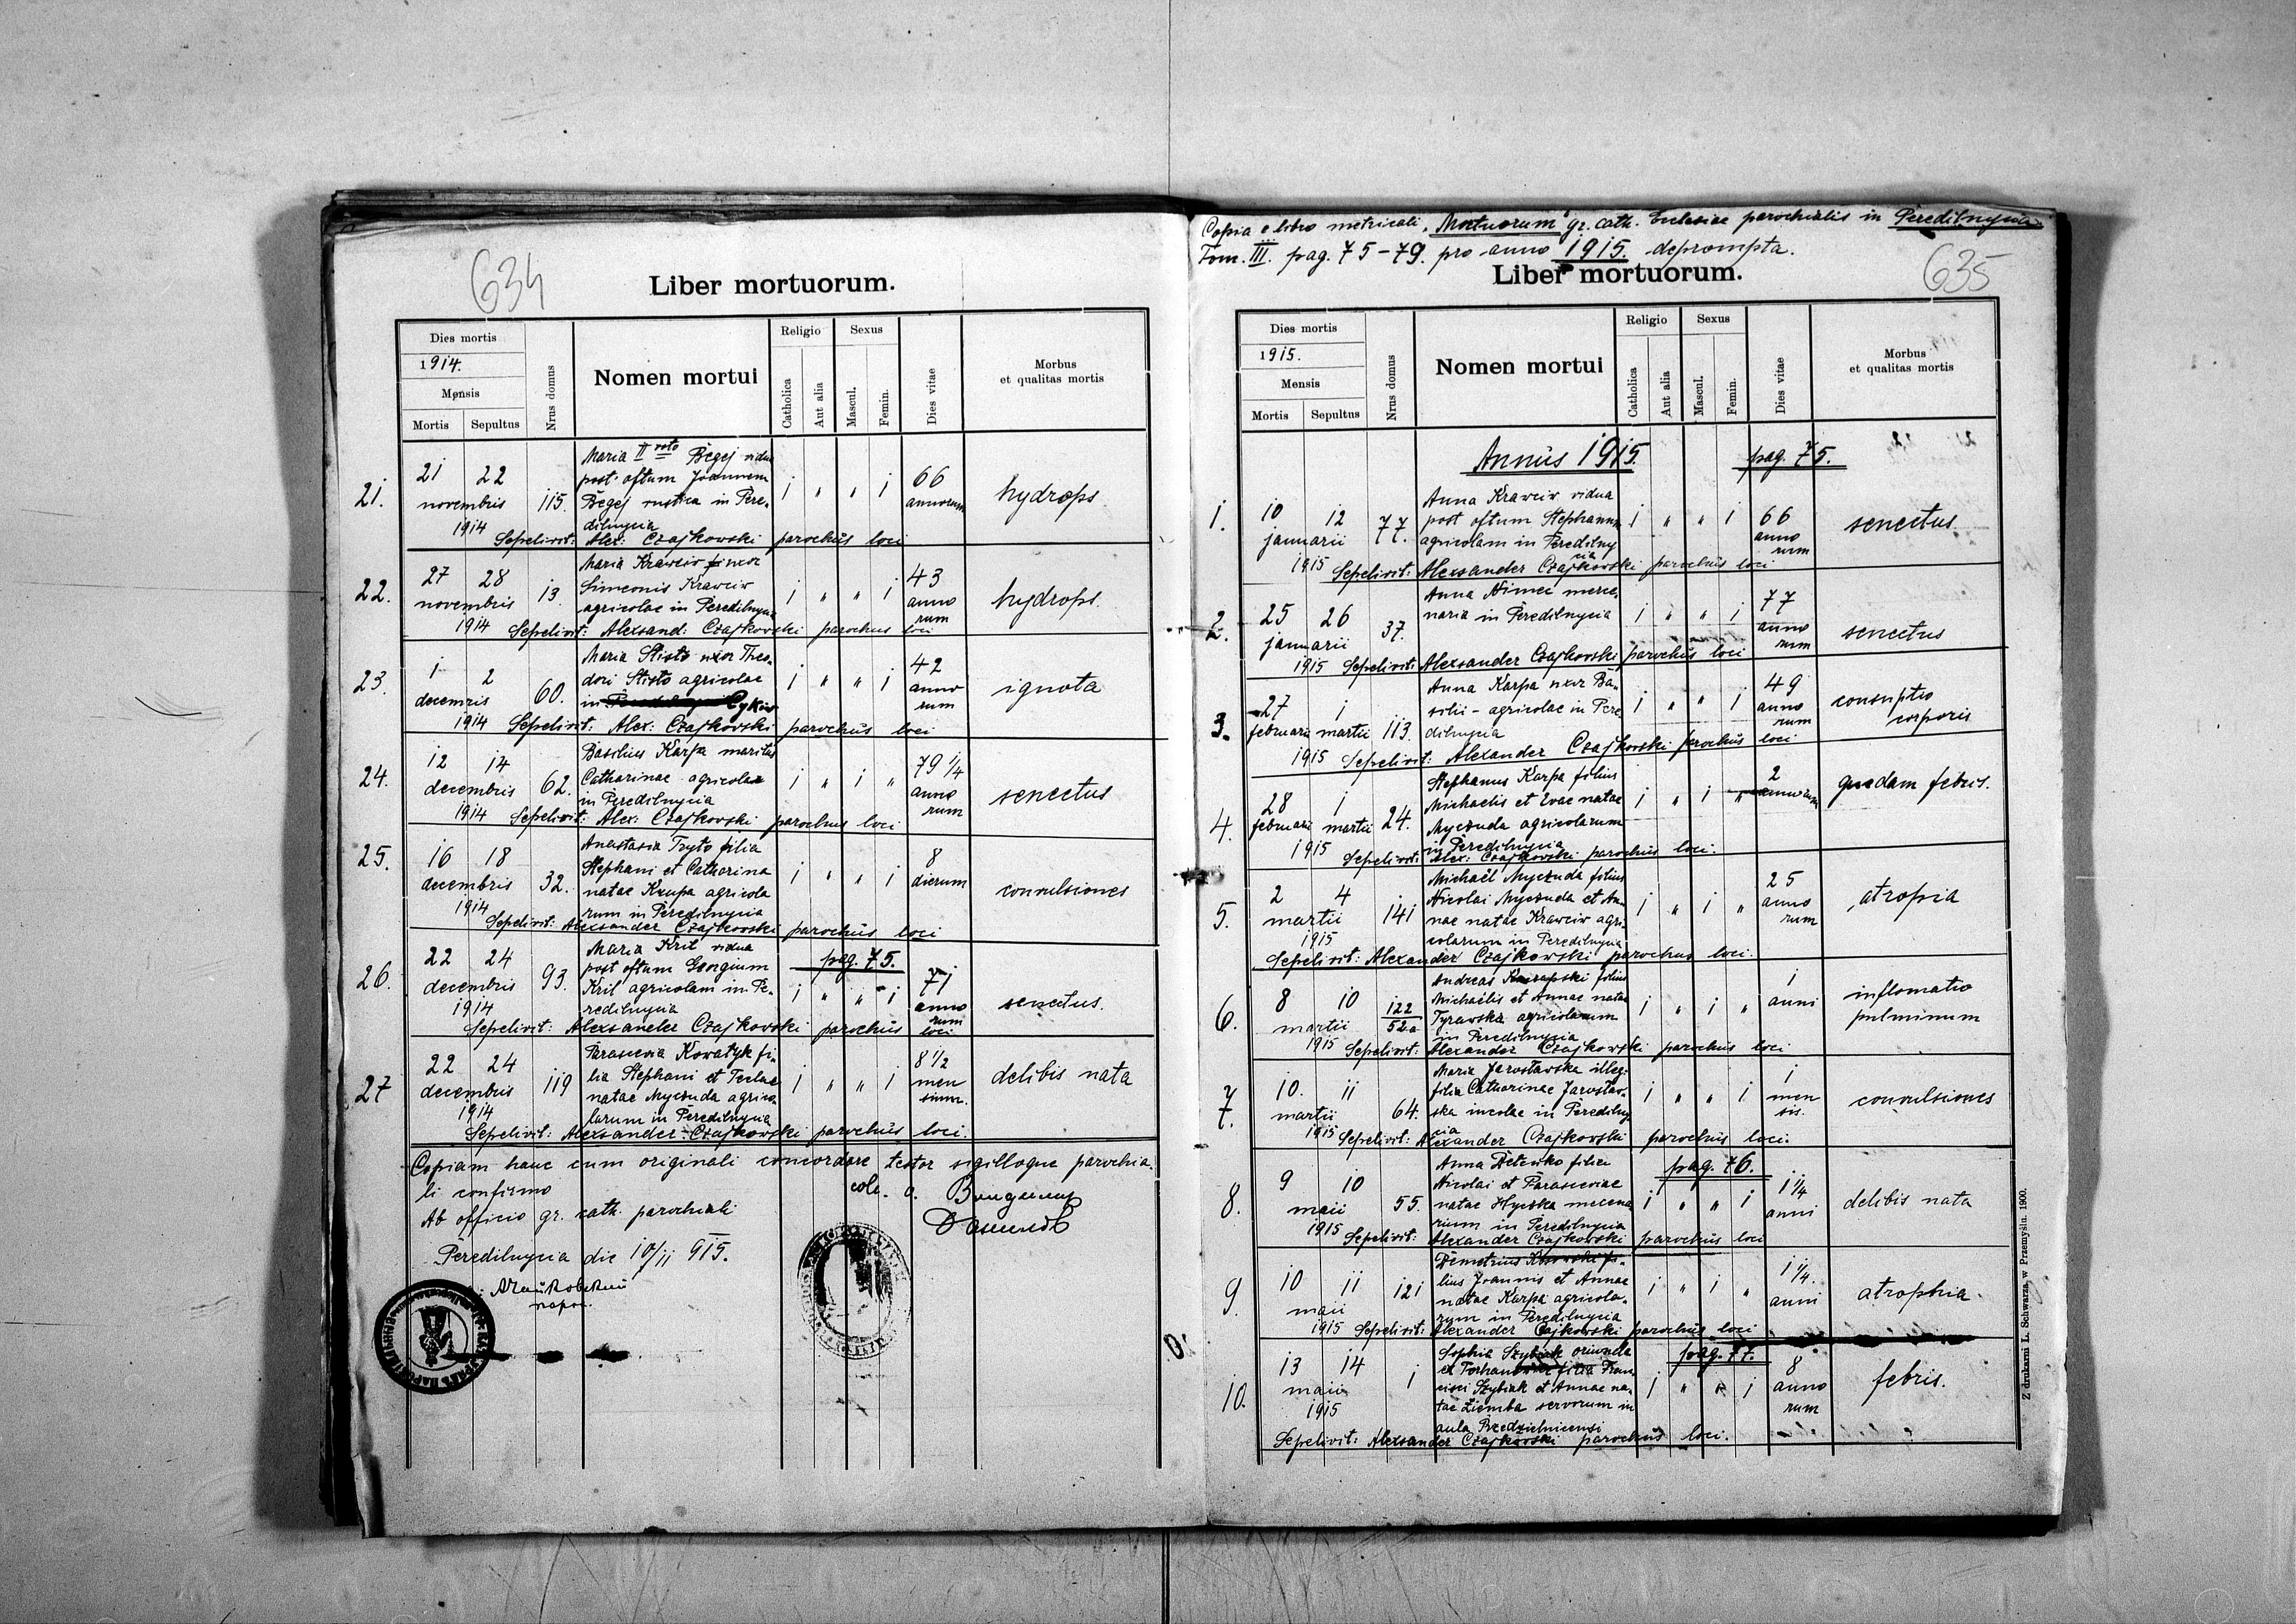 634
Liber mortuorum.
Dies mortis
1914.
Mensis
Mortis
Sepultus
Nrus domus
Nomen mortui
Religio
Catholica
Aut alia
Sexus
Mascul.
Femin.
Dies vitae
Morbus
et qualitas mortis
21.
21 22
novembris
1914
115.
Maria II voto Begej vidua
post oftum Joannem
Begej rustica in Pere-
dilnycia
1 " " 1
66
annorum
hydrops
Sepelivit: Alex: Czajkowski parochus loci
22.
27 28
novembris
1914
13.
Maria Kraweiw uxor
Simeonis Kraweiw
agricolae in Peredilnycia
1 " " 1
43
anno
rum
hydrops.
Sepelivit: Alexand: Czajkowski parochus loci
23.
1 2
decembris
1914
60.
Maria Stisto uxor Theo-
dori Stisto agricolae
in
1 " " 1
42
anno
rum
ignota
Sepelivit: Alex: Czajkowski parochus loci
24.
12 14
decembris
1914
62.
Basilius Karpa maritus
Catharinae agricolae
in Peredilnycia
1 " 1 "
79 1/4
anno
rum
senectus
Sepelivit: Alex: Czajkowski parochus loci
25.
16 18
decembris
1914
32.
Anastasia Tryto filia
Stephani et Catharina
natae Krupa agricola
rum in Peredilnycia
1 " " 1
8
dierum
convulsiones
Sepelivit: Alexsander Czajkowski parochus loci
26.
22 24
decembris
1914
93.
Maria Kril vidua
post oftum Georgium
Kril agricolam in Pe-
redilnycia
pag. 75.
1 " " 1
71
anno
rum
senectus.
Sepelivit: Alexsander Czajkowski parochus loci
27
22 24
decembris
1914
119
Parascevia Kowatyk fi-
lia Stephani et Teclae
natae Myczuda agrico-
larum in Peredilnycia
1 " " 1
8 1/2
men
sium.
delibis nata
Sepelivit: Alexsander Czajkowski parochus loci.
Copiam hanc cum originali concordare testor sigilloque parochia-
li confirmo
Ab officio gr. cath. parochiali
Peredilnycia die 10/II 915.
Copia e libro metricali "Mortuorum" gr. cath. Ecclesiae parochialis in Peredilnycia
Tom. III. pag. 75-79. pro anno 1915. deprompta.
635
Liber mortuorum.
Dies mortis
1915.
Mensis
Mortis
Sepultus
Nrus domus
Nomen mortui
Religio
Catholica
Aut alia
Sexus
Mascul.
Femin.
Dies vitae
Morbus
et qualitas mortis
Annus 1915.
pag. 75.
1.
10 12
januarii
1915
77.
Anna Kraweiw vidua
post oftum Stephanum
agricolam in Peredilny
cia
1 " " 1
66
anno
rum
senectus
Sepelivit: Alexsander Czajkowski parochus loci
2.
25 26
januarii
1915
37.
Anna Nimec merce-
naria in Peredilnycia
1 " " 1
77
anno
rum
senectus
Sepelivit: Alexsander Czajkowski parochus loci
3.
27 1
februarii martii
1915
113.
Anna Karpa uxor Ba-
silii - agricolae in Pere-
dilnycia
1 " " 1
49
anno
rum
consuptio
corporis
Sepelivit: Alexander Czajkowski parochus loci
4.
28 1
februarii martii
1915
24.
Stephanus Karpa filius
Michaelis et Evae natae
Myczuda agricolarum
in Peredilnycia
1 " 1 "
2
annorum
quedam febris.
Sepelivit: Alex: Czajkowski parochus loci.
5.
2 4
martii
1915
141
Michaël Myczuda filius
Nicolai Myczuda et An-
nae natae Kraweiw agri-
colarum in Peredilnycia
1 " 1 "
25
anno
rum
atropia
Sepelivit: Alexander Czajkowski parochus loci.
6.
8 10
martii
1915
122
52a
Andreas filius
Michaëlis et Annae natae
Tyrawska agricolarum
in Peredilnycia
1 " 1 "
1
anni
inflomatio
pulminum
Sepelivit: Alexander Czajkowski parochus loci
7.
10. 11
martii
1915
64.
Maria Jarostawska illeg:
filia Catharinae Jarostaw-
ska incolae in Peredilny-
cia
1 " " 1
1
men
sis.
convulsiones
Sepelivit: Alexander Czajkowski parochus loci.
8.
9 10
maii
1915
55.
Anna Detenko filia
Nicolai et Parasceviae
natae Hycska mecena
rium in Peredilnycia
pag. 76.
1 " " 1
1 1/4
anni
delibis nata
Sepelivit: Alexander Czajkowski parochus loci
9.
10 11
maii
1915
121
Demetrius Kosowski fi-
lius Joannis et Annae
natae Karpa agricola-
rum in Peredilnycia
1 " 1 "
1 1/4.
anni
atrophia
Sepelivit: Alexander Czajkowski parochus loci
10.
13 14
maii
1915
1
Sophia Szybiak oriunda
ex filia Fran-
cisci Szybiak et Annae na-
tae Ziemba servorum in
aula Przedzielnicensi
pag. 77.
1 " " 1
8
anno
rum
febris.
Sepelivit: Alexsander Czajkowski parochus loci.
Z drukarni L. Schwarza, w Przemyślu. 1900.